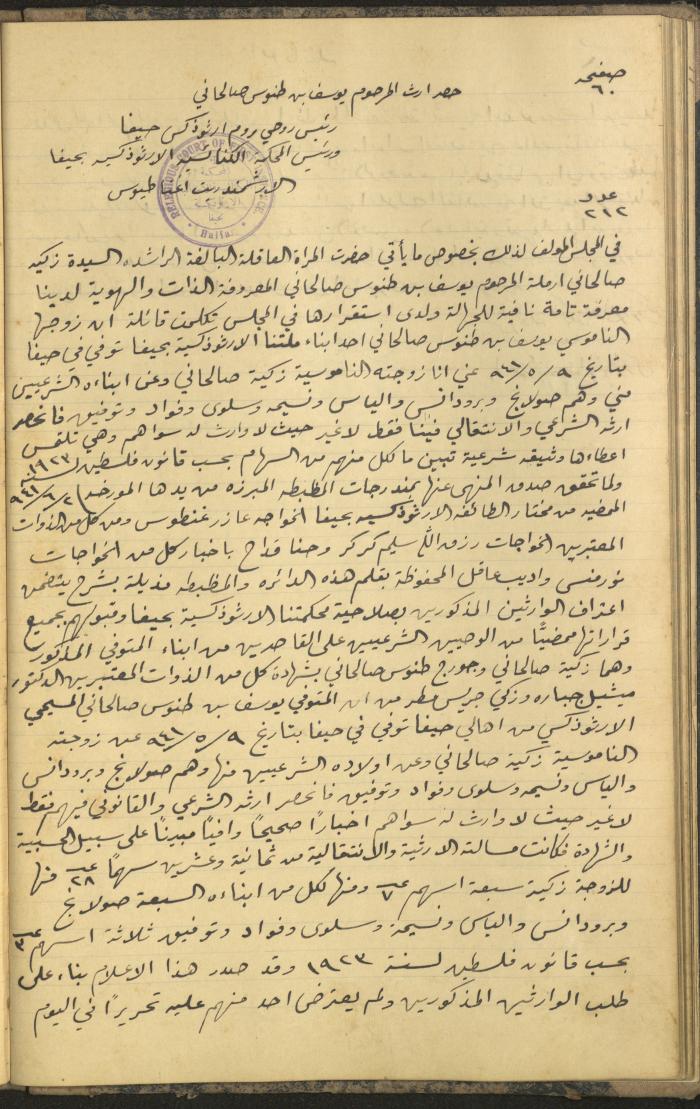 صفحة
٦٠
حصر ارث المرحوم يوسف بن طنوس صالحاني
رئيس روحي روم ارثوذكس حيفا
ورئيس المحكمة الكنائسية الارثوذكسيه بحيفا
الارشمندريت اغناطيوس
RELIGIOUS COURT OF
Haifa
عدد
٢١٢
في المجلس المؤلف لذلك بخصوص ما يأتي حضرت المرأة العاقلة البالغة الراشده السيدة زكيه
صالحاني ارملة المرحوم يوسف بن طنوس صالحاني المعروفة الذات والهوية لدينا
معرفة تامة نافية للجهالة ولدى استقرارها في المجلس تكلمت قائلة ان زوجها
الناموسي يوسف بن طنوس صالحاني احد ابناء ملتنا الارثوذكسية بحيفا توفي في حيفا
بتاريخ ٩/٥/٩٤١ عني انا زوجته الناموسية زكية صالحاني وعن ابناءه الشرعيين
مني وهم صولانج وبرودانس والياس ونسيمه وسلوى وفواد وتوفيق فانحصر
ارثه الشرعي والانتقالي فينا فقط لاغير حيث لا وارث له سواهم وهي تلتمس
اعطاءها وثيقه شرعية تبين ما لكل منهم من السهام بحسب قانون فلسطين لسنة ١٩٢٣
ولما تحقق صدق المنهى عنها بمندرجات المظبطه المبرزه من يدها المورخه ٢/٦/٩٤١
الممضيه من مختار الطائفه الارثوذكسيه بحيفا الخواجه عازر غنطوس ومن كل من الذوات
المعتبرين الخواجات رزق الله سليم كركر وحنا قداح باخبار كل من الخواجات
واديب عاقل المحفوظة بقلم هذه الدائره والمظبطه مذيلة بشرح يتضمن
اعتراف الوارثين المذكورين بصلاحية محكمتنا الارثوذكسية بحيفا وقبولهم بجميع
قراراتها ممضيًا من الوصيين الشرعيين على القاصرين من ابناء المتوفي المذكور
وهما زكية صالحاني وجورج طنوس صالحاني بشهادة كل من الذوات المعتبرين الدكتور
ميشيل جباره وزكي جريس مطر من ان المتوفي يوسف بن طنوس صالحاني المسيحي
الارثوذكسي من اهالي حيفا توفي في حيفا بتاريخ ٩/٥/٩٤١ عن زوجته
الناموسية زكية صالحاني وعن اولاده الشرعيين منها وهم صولانج وبرودانس
والياس ونسيمه وسلوى وفواد وتوفيق فانحصر ارثه الشرعي والقانوني فيهم فقط
لاغير حيث لا وارث له سواهم اخبارًا صحيحًا وافيًا مبينًا على سبيل الحسبية
والشهادة فكانت مسالته الارثية والانتقالية من ثمانية وعشرين سهمًا ٢٨ منها
للزوجة زكية سبعة اسهم ٧ ومنها لكل من ابناءه السبعة صولانج
وبرودانس والياس ونسيمة وسلوى وفواد وتوفيق ثلاثة اسهم ٣
بحسب قانون فلسطين لسنة ١٩٢٣ وقد صدر هذا الاعلام بناء على
طلب الوارثين المذكورين ولم يعترض احد منهم عليه تحريرًا في اليوم